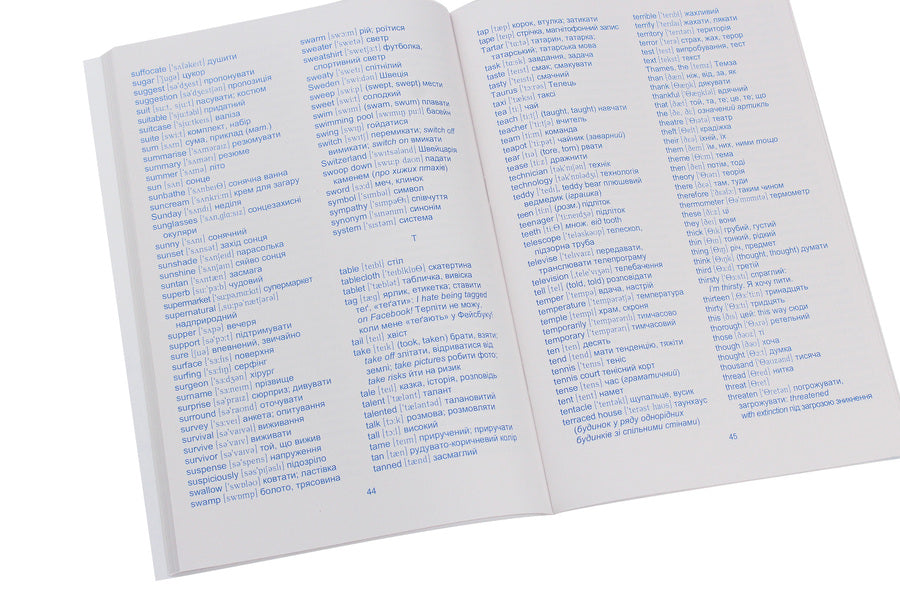 suffocate ['sʌfəkeɪt] душити
sugar ['ʃʊgə] цукор
suggest [sə'dʒest] пропонувати
suggestion [sə'dʒestʃən] пропозиція
suit [su:t, sju:t] пасувати; костюм
suitable ['su:təbl] придатний
suitcase ['su:tkeɪs] валіза
suite [swi:t] комплект, набір
sum [sʌm] сума, приклад (мат.)
summarise ['sʌməraɪz] резюмувати
summary ['sʌmərɪ] резюме
summer ['sʌmə] літо
sun [sʌn] сонце
sunbathe ['sʌnbeɪð] сонячна ванна
suncream ['sʌnkri:m] крем для загару
Sunday ['sʌndɪ] неділя
sunglasses ['sʌnglɑ:sɪz] сонцезахисні
окуляри
sunny ['sʌnɪ] сонячний
sunset ['sʌnset] захід сонця
sunshade ['sʌnʃeɪd] парасолька
sunshine ['sʌnʃaɪn] сяйво сонця
suntan ['sʌntæn] засмага
superb [su:'pɜ:b] чудовий
supermarket ['su:pəmɑ:kɪt] супермаркет
supernatural [su:pə'nætʃərəl]
надприродний
supper ['sʌpə] вечеря
support [sə'pɔ:t] підтримувати
sure [ʃʊə] впевнений, звичайно
surface ['sɜ:fɪs] поверхня
surfing ['sɜ:fɪŋ] серфінг
surgeon ['sɜ:dʒən] хірург
surname ['sɜ:neɪm] прізвище
surprise [sə'praɪz] сюрприз; дивувати
surround [sə'raʊnd] оточувати
survey ['sɜ:veɪ] анкета; опитування
survival [sə'vaɪvəl] виживання
survive [sə'vaɪv] виживати
survivor [sə'vaɪvə] той, що вижив
suspense [səs'pens] напруження
suspiciously [səs'pɪʃəslɪ] підозріло
swallow ['swɒləʊ] ковтати; ластівка
swamp [swɒmp] болото, трясовина
swarm [swɔ:m] рій; роїтися
sweater ['swetə] светр
sweatshirt ['swetʃɜ:t] футболка,
спортивний светр
sweaty ['swetɪ] спітнілий
Sweden ['swi:dən] Швеція
sweep [swi:p] (swept, swept) мести
sweet [swi:t] солодкий
swim [swɪm] (swam, swum) плавати
swimming pool ['swɪmɪŋ pu:l] басейн
swing [swɪŋ] гойдатися
switch [swɪtʃ] перемикати; switch off
вимикати; switch on вмикати
Switzerland ['swɪtsələnd] Швейцарія
swoop down [swu:p daʊn] падати
каменем (про хижих птахів)
sword [sɔ:d] меч, клинок
symbol ['sɪmbəl] символ
sympathy ['sɪmpəθɪ] співчуття
synonym ['sɪnənɪm] синонім
system ['sɪstəm] система
T
table [teɪbl] стіл
tablecloth ['teɪblklɒθ] скатертина
tablet ['tæblət] табличка, вивіска
tag [tæg] ярлик, етикетка; ставити
теґ, «теґати»: I hate being tagged
on Facebook! Терпіти не можу,
коли мене «теґають» у Фейсбук!
tail [teɪl] хвіст
take [teɪk] (took, taken) брати, взяти;
take off злітати, відриватися від
землі; take pictures робити фото;
take risks йти на ризик
tale [teɪl] казка, історія, розповідь
talent ['tælənt] талант
talented ['tæləntəd] талановитий
talk [tɔ:k] розмова; розмовляти
tall [tɔ:l] високий
tame [teɪm] приручений; приручати
tan [tæn] рудувато-коричневий колір
tanned [tænd] засмаглий
44
tap [tæp] корок, втулка; затикати
tape [teɪp] стрічка, магнітофонний запис
Tartar ['tɑ:tə] татарин, татарка;
татарський; татарська мова
task [tɑ:sk] завдання, задача
taste [teɪst] смак; смакувати
tasty ['teɪstɪ] смачний
Taurus ['tɔ:rəs] Телець
taxi ['tæksɪ] таксі
tea [ti:] чай
teach [ti:tʃ] (taught, taught) навчати
teacher ['ti:tʃə] вчитель
team [ti:m] команда
teapot ['ti:pɒt] чайник (заварний)
tear [tɪə] (tore, torn) рвати
tease [ti:z] дражнити
technician [tek'nɪʃən] технік
technology [tek'nɒlədʒɪ] технологія
teddy ['tedɪ], teddy bear плюшевий
ведмедик (іграшка)
teen [ti:n] (розм.) підліток
teenager ['ti:neɪdʒə] підліток
teeth [ti:θ] множ. від tooth
telescope ['teləskəʊp] телескоп,
підзорна труба
televise ['telɪvaɪz] передавати,
транслювати телепрограму
television [,telə'vɪʒən] телебачення
tell [tel] (told, told) розповідати
temper ['tempə] вдача, настрій
temperature ['tempərətʃə] температура
temple [templ] храм, скроня
temporarily ['tempərərɪlɪ] тимчасово
temporary ['tempərərɪ] тимчасовий
ten [ten] десять
tend [tend] мати тенденцію, тяжіти
tennis ['tenɪs] теніс
tennis court тенісний корт
tense [tens] час (граматичний)
tent [tent] намет
tentacle ['tentəkl] щупальце, вусик
terraced house ['terəst haʊs] таунхаус
(будинок у ряду однорідних
будинків зі спільними стінами)
terrible ['terɪbl] жахливий
terrify ['terɪfaɪ] жахати, лякати
territory ['terɪtərɪ] територія
terror ['terə] страх, жах, терор
test [test] випробування, тест
text [tekst] текст
Thames, the [temz] Темза
than [ðæn] ніж, від, за, як
thank [θæŋk] дякувати
thankful ['θæŋkfʊl] вдячний
that [ðæt] той, та, те; це, те; що
the [ðə, ði:] означений артикль
theatre ['θɪətə] театр
theft [θeft] крадіжка
their [ðeə] їхній, їх
them [ðem] їм, них, ними тощо
theme [θi:m] тема
then [ðen] потім, тоді
theory ['θɪərɪ] теорія
there [ðeə] там, туди
therefore ['ðeəfɔ:] таким чином
thermometer [θə'mɒmɪtə] термометр
these [ði:z] ці
they [ðeɪ] вони
thick [θɪk] грубий, густий
thin [θɪn] тонкий, рідкий
thing [θɪŋ] річ, предмет
think [θɪŋk] (thought, thought) думати
third [θɜ:d] третій
thirsty ['θɜ:stɪ] спраглий;
I'm thirsty. Я хочу пити.
thirteen [θɜ:'ti:n] тринадцять
thirty ['θɜ:tɪ] тридцять
this [ðɪs] цей; this way сюди
thorough ['θʌrə] ретельний
those [ðəʊz] ті
though [ðəʊ] хоча
thought [θɔ:t] думка
thousand ['θaʊzənd] тисяча
thread [θred] нитка
threat [θret]
threaten ['θretən] погрожувати,
загрожувати: threatened
with extinction під загрозою зникнення
45